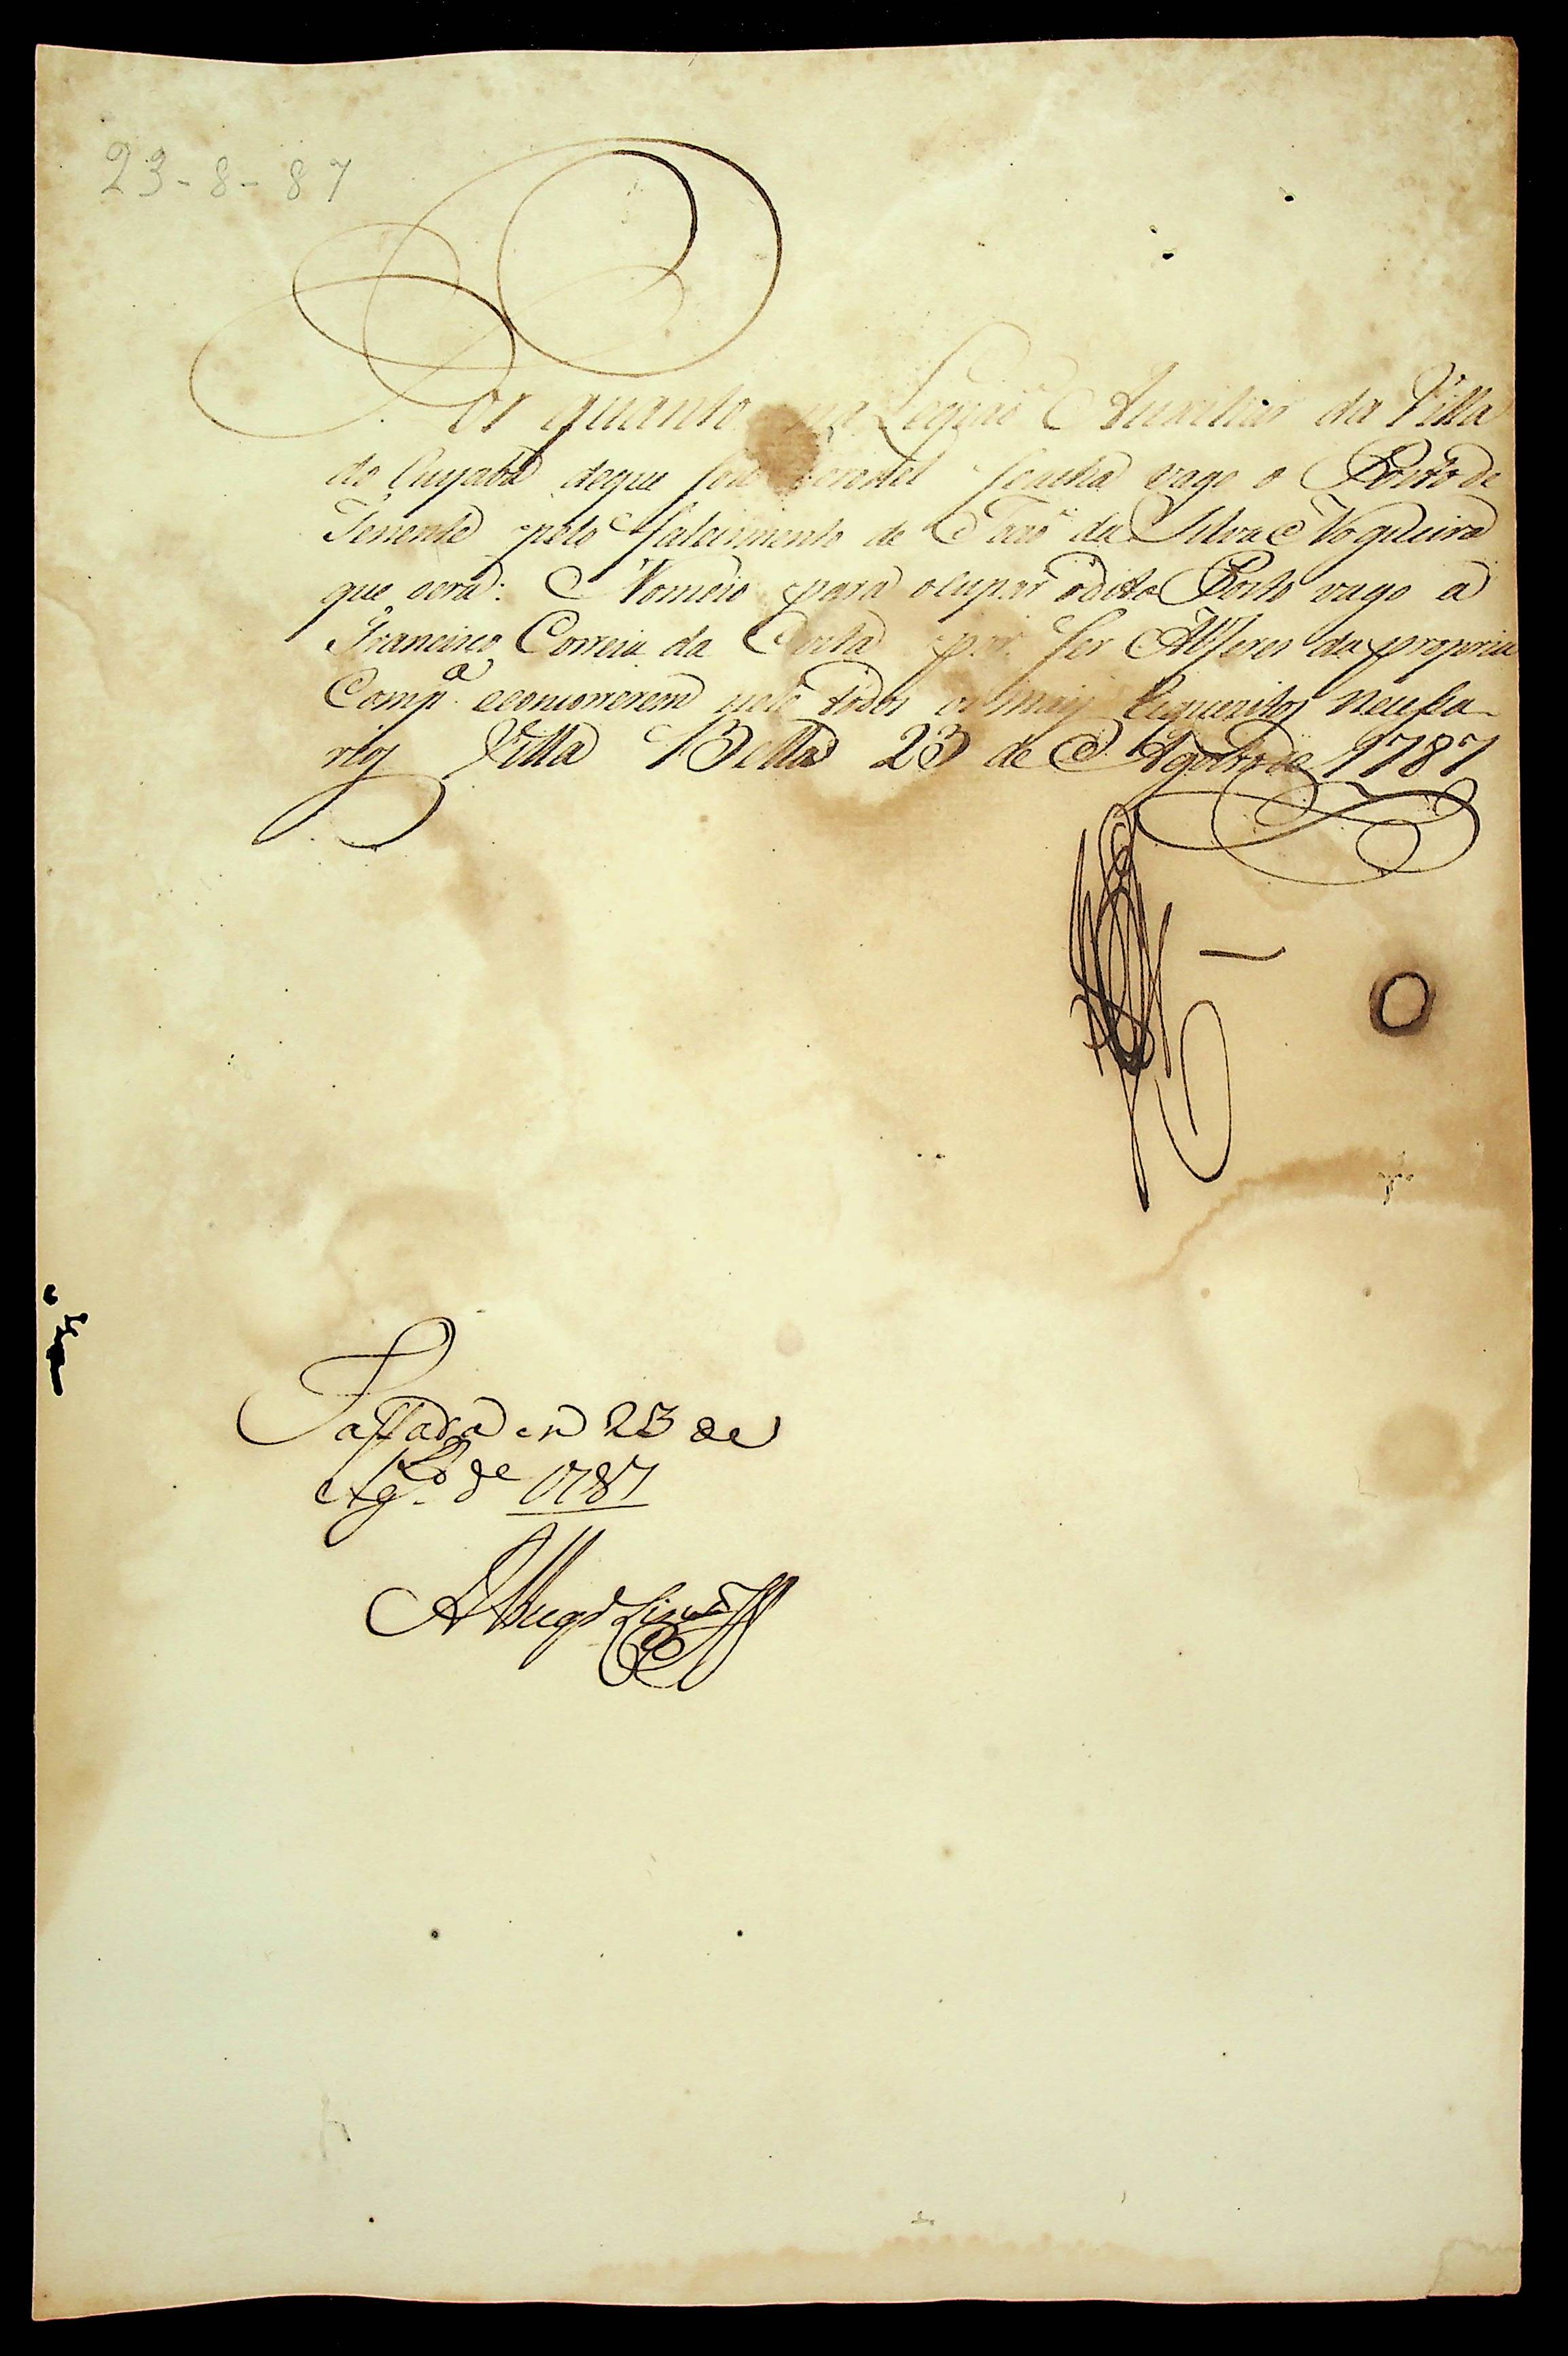 23-8-87
Por quanto na Legiaõ Auxiliar da Villa
do Cuyabá deque sou Coronel se acha vago o Posto de
Tenente pelo falecimento de da Silva Nogueira
que era: Nomeio para ocupar odito Posto vago a
Francisco Correia da Costa por ser Alferes da propria
Comp.ª econcorrerem nele todos os mais requezitos necessa-
rios Villa Bella 23 de Agosto de 1787
Passada em 23 de
Ag.to de 1787